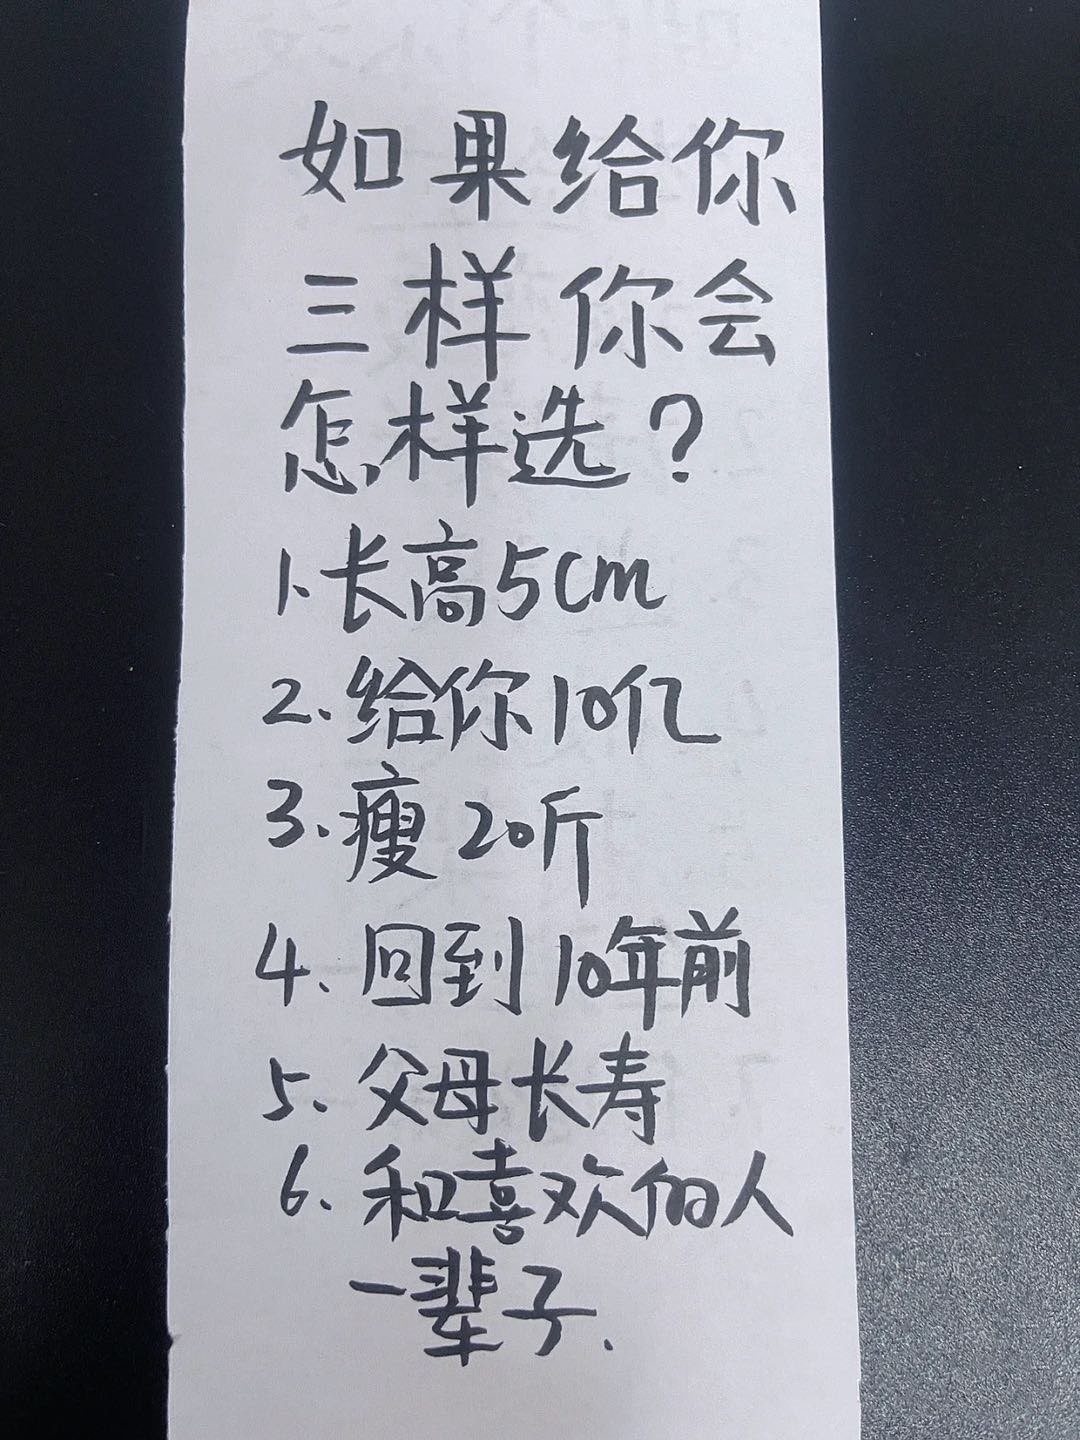 如果给你
三样你会
怎样选？
1.长高5cm
2.给你10亿
3.瘦20斤
4.回到10年前
5.父母长寿
6.和喜欢的人
一辈子.